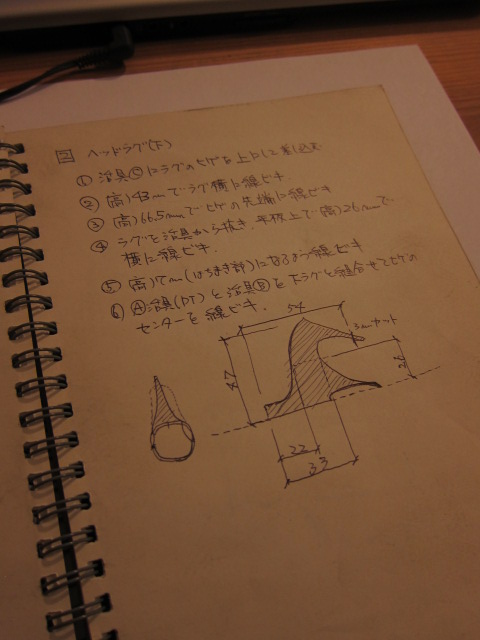 2 ヘッドラグ(下)
① 治具Ⓒにラグのヒゲを上にして差し込み
② (高)43mmでラグ横に線ビキ.
③ (高)66.5mmでヒゲの先端に線ビキ
④ ラグを治具から抜き、平板上で(高)26mmで
横に線ビキ.
⑤ (高)7mm(はちまき部)になるよう線ビキ
⑥ Ⓐ治具(DT)と治具Ⓑを下ラグと組合せてヒゲの
センターを線ビキ.
54
3mmカット
47
26
22
33